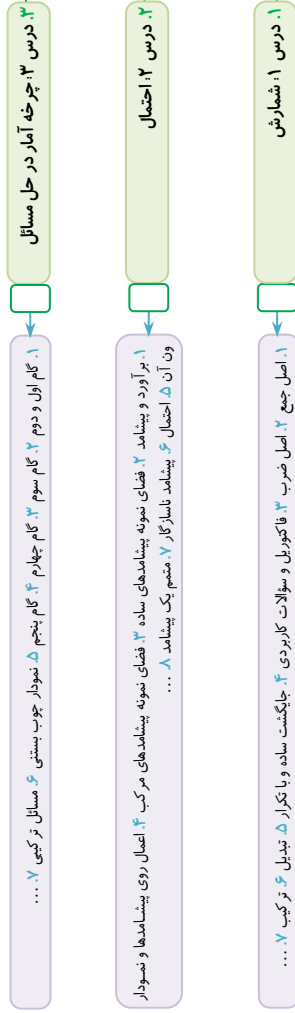 ۱. درس ۱: شمارش
۱. اصل جمع ۲. اصل ضرب ۳. فاکتوریل و سؤالات کاربردی ۴. جایگشت ساده و با تکرار ۵. تبدیل ۶. ترکیب ۷. ...
۲. درس ۲: احتمال
۱. برآورد و پیشامد ۲. فضای نمونه پیشامدهای ساده ۳. فضای نمونه پیشامدهای مرکب ۴. اعمال روی پیشامدها و نمودار
ون آن ۵. احتمال ۶. پیشامد ناسازگار ۷. متمم یک پیشامد ۸. ...
۳. درس ۳: چرخه آمار در حل مسائل
۱. گام اول و دوم ۲. گام سوم ۳. گام چهارم ۴. گام پنجم ۵. نمودار چوب بستنی ۶. مسائل ترکیبی ۷. ...